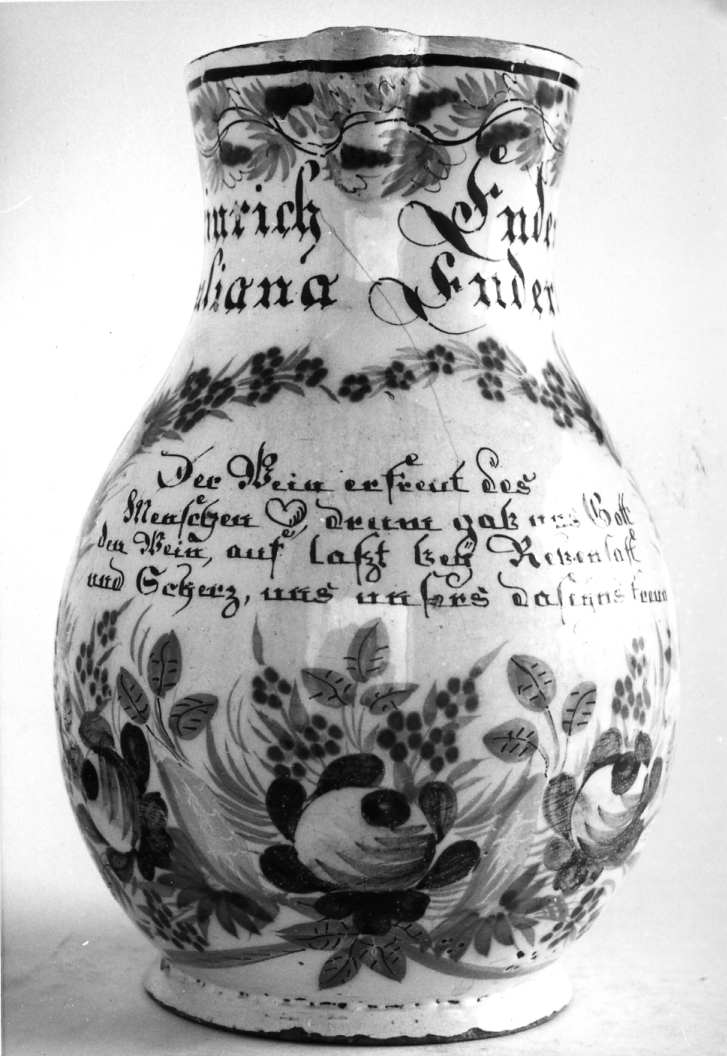 inrich Ender
uliana Ender
Der Wein erfreut des
Menschen ♡, drum gab uns Gott
den Wein, auf laßt bey Rebensaft
und Scherz, uns unsers daseyns freun